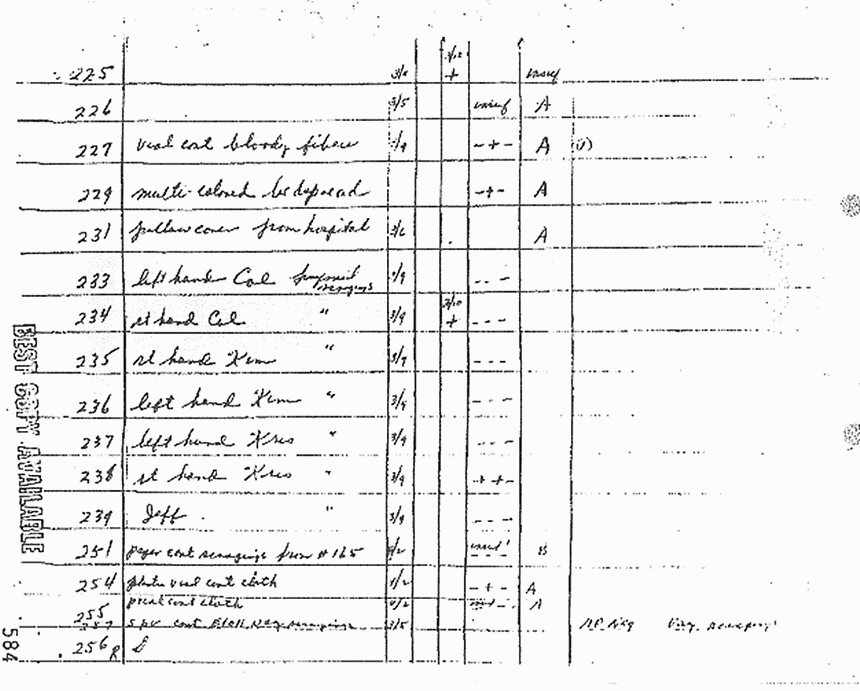 3/10
225 3/4 + unsuf
226 3/5 unsuf A
227 vial cont bloody fibers 3/9 - + - A (1)
229 multi-colored bedspread - + - A
231 pillow cover from hospital 3/6 A
233 left hand Col fingernail scrapings 3/9 - - -
3/10
234 rt hand Col " 3/9 + - - -
235 rt hand Kim " 3/9 - - -
236 left hand Kim " 3/9 - - -
237 left hand Kris " 3/9 - - -
238 rt hand Kris " 3/9 + + -
239 Jeff " 3/9 - - -
251 paper cont scrapings from # 165 - - - B
254 vial cont cloth - + - A
255 cont cloth A
257 cont scrapings 3/5 neg
256 R
BEST COPY AVAILABLE
584